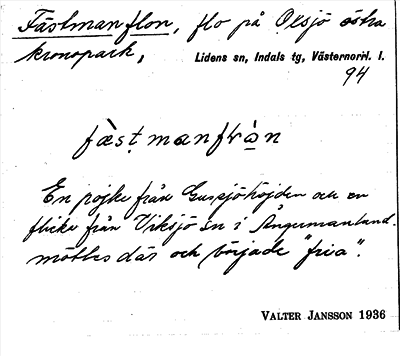 Fästmanflon, flo på Olsjö östra
kronopark, Lidens sn, Indals tg, Västernorrl. l.
94
fæ̀sṭmanflὼn
En pojke från Gussjöhöjden och en
flicka från Viksjö sn i Ångermanland.
möttes där och började "fria".
VALTER JANSSON 1936